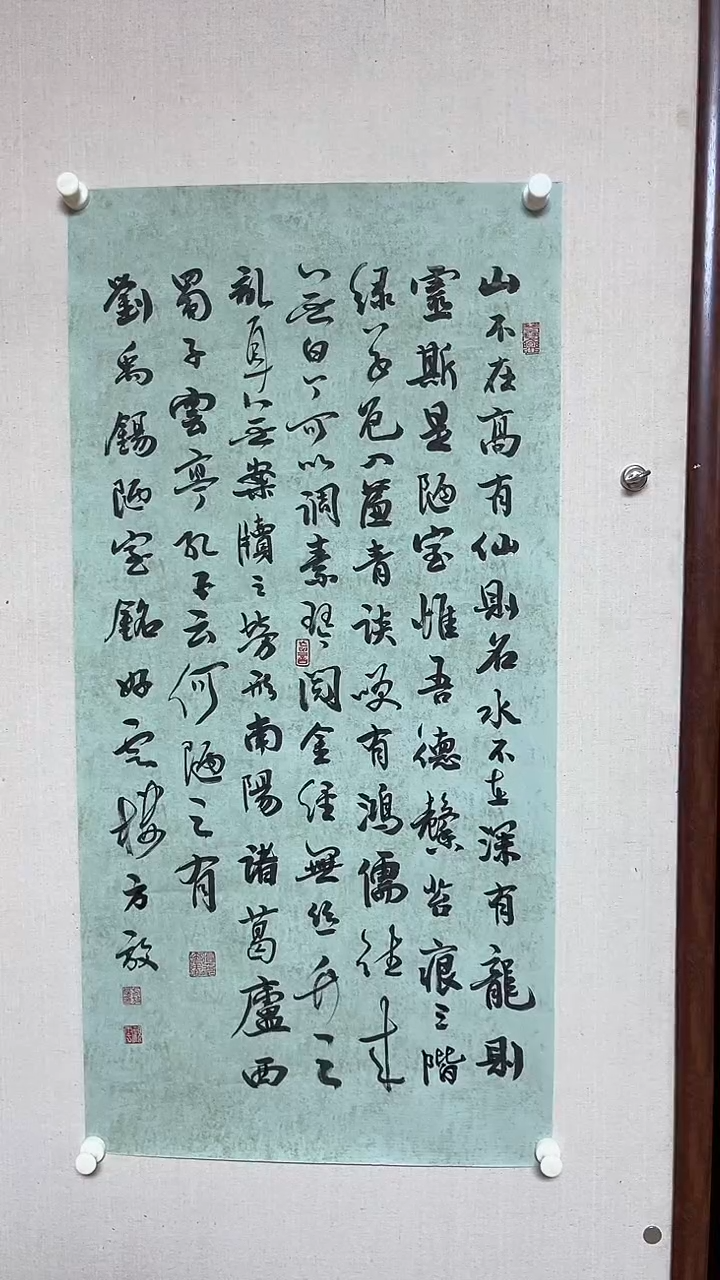 山不在高有仙則名水不在深有龍則
靈斯是陋室惟吾德馨苔痕上階
绿草色入簾青談咲有鴻儒往来
無白丁可以调素琴閲金經無丝竹之
亂耳無案牘之勞形南陽諸葛廬西
蜀子雲亭孔子云何陋之有
劉禹錫陋室銘好雲樓方